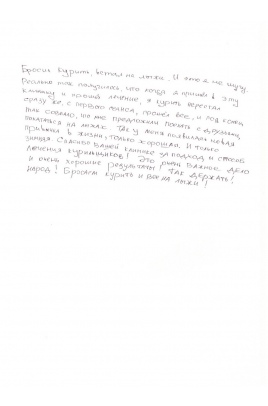 Бросил курить, встал на лыжи. И это я не шучу.
Реально так получилось, что когда я пришёл в эту
клинику и прошёл лечение, я курить перестал
сразу же, с первого сеанса, прошёл все, и под конец
так совпало, что мне предложили поехать с друзьями,
покататься на лыжах. Так у меня появилась новая
привычка в жизни, только хорошая. И только
зимняя. Спасибо вашей клинике за подход и способ
лечения курильщиков! Это очень важное дело
и очень хорошие результаты! Так держать!
народ! Бросаем курить и все на лыжи!